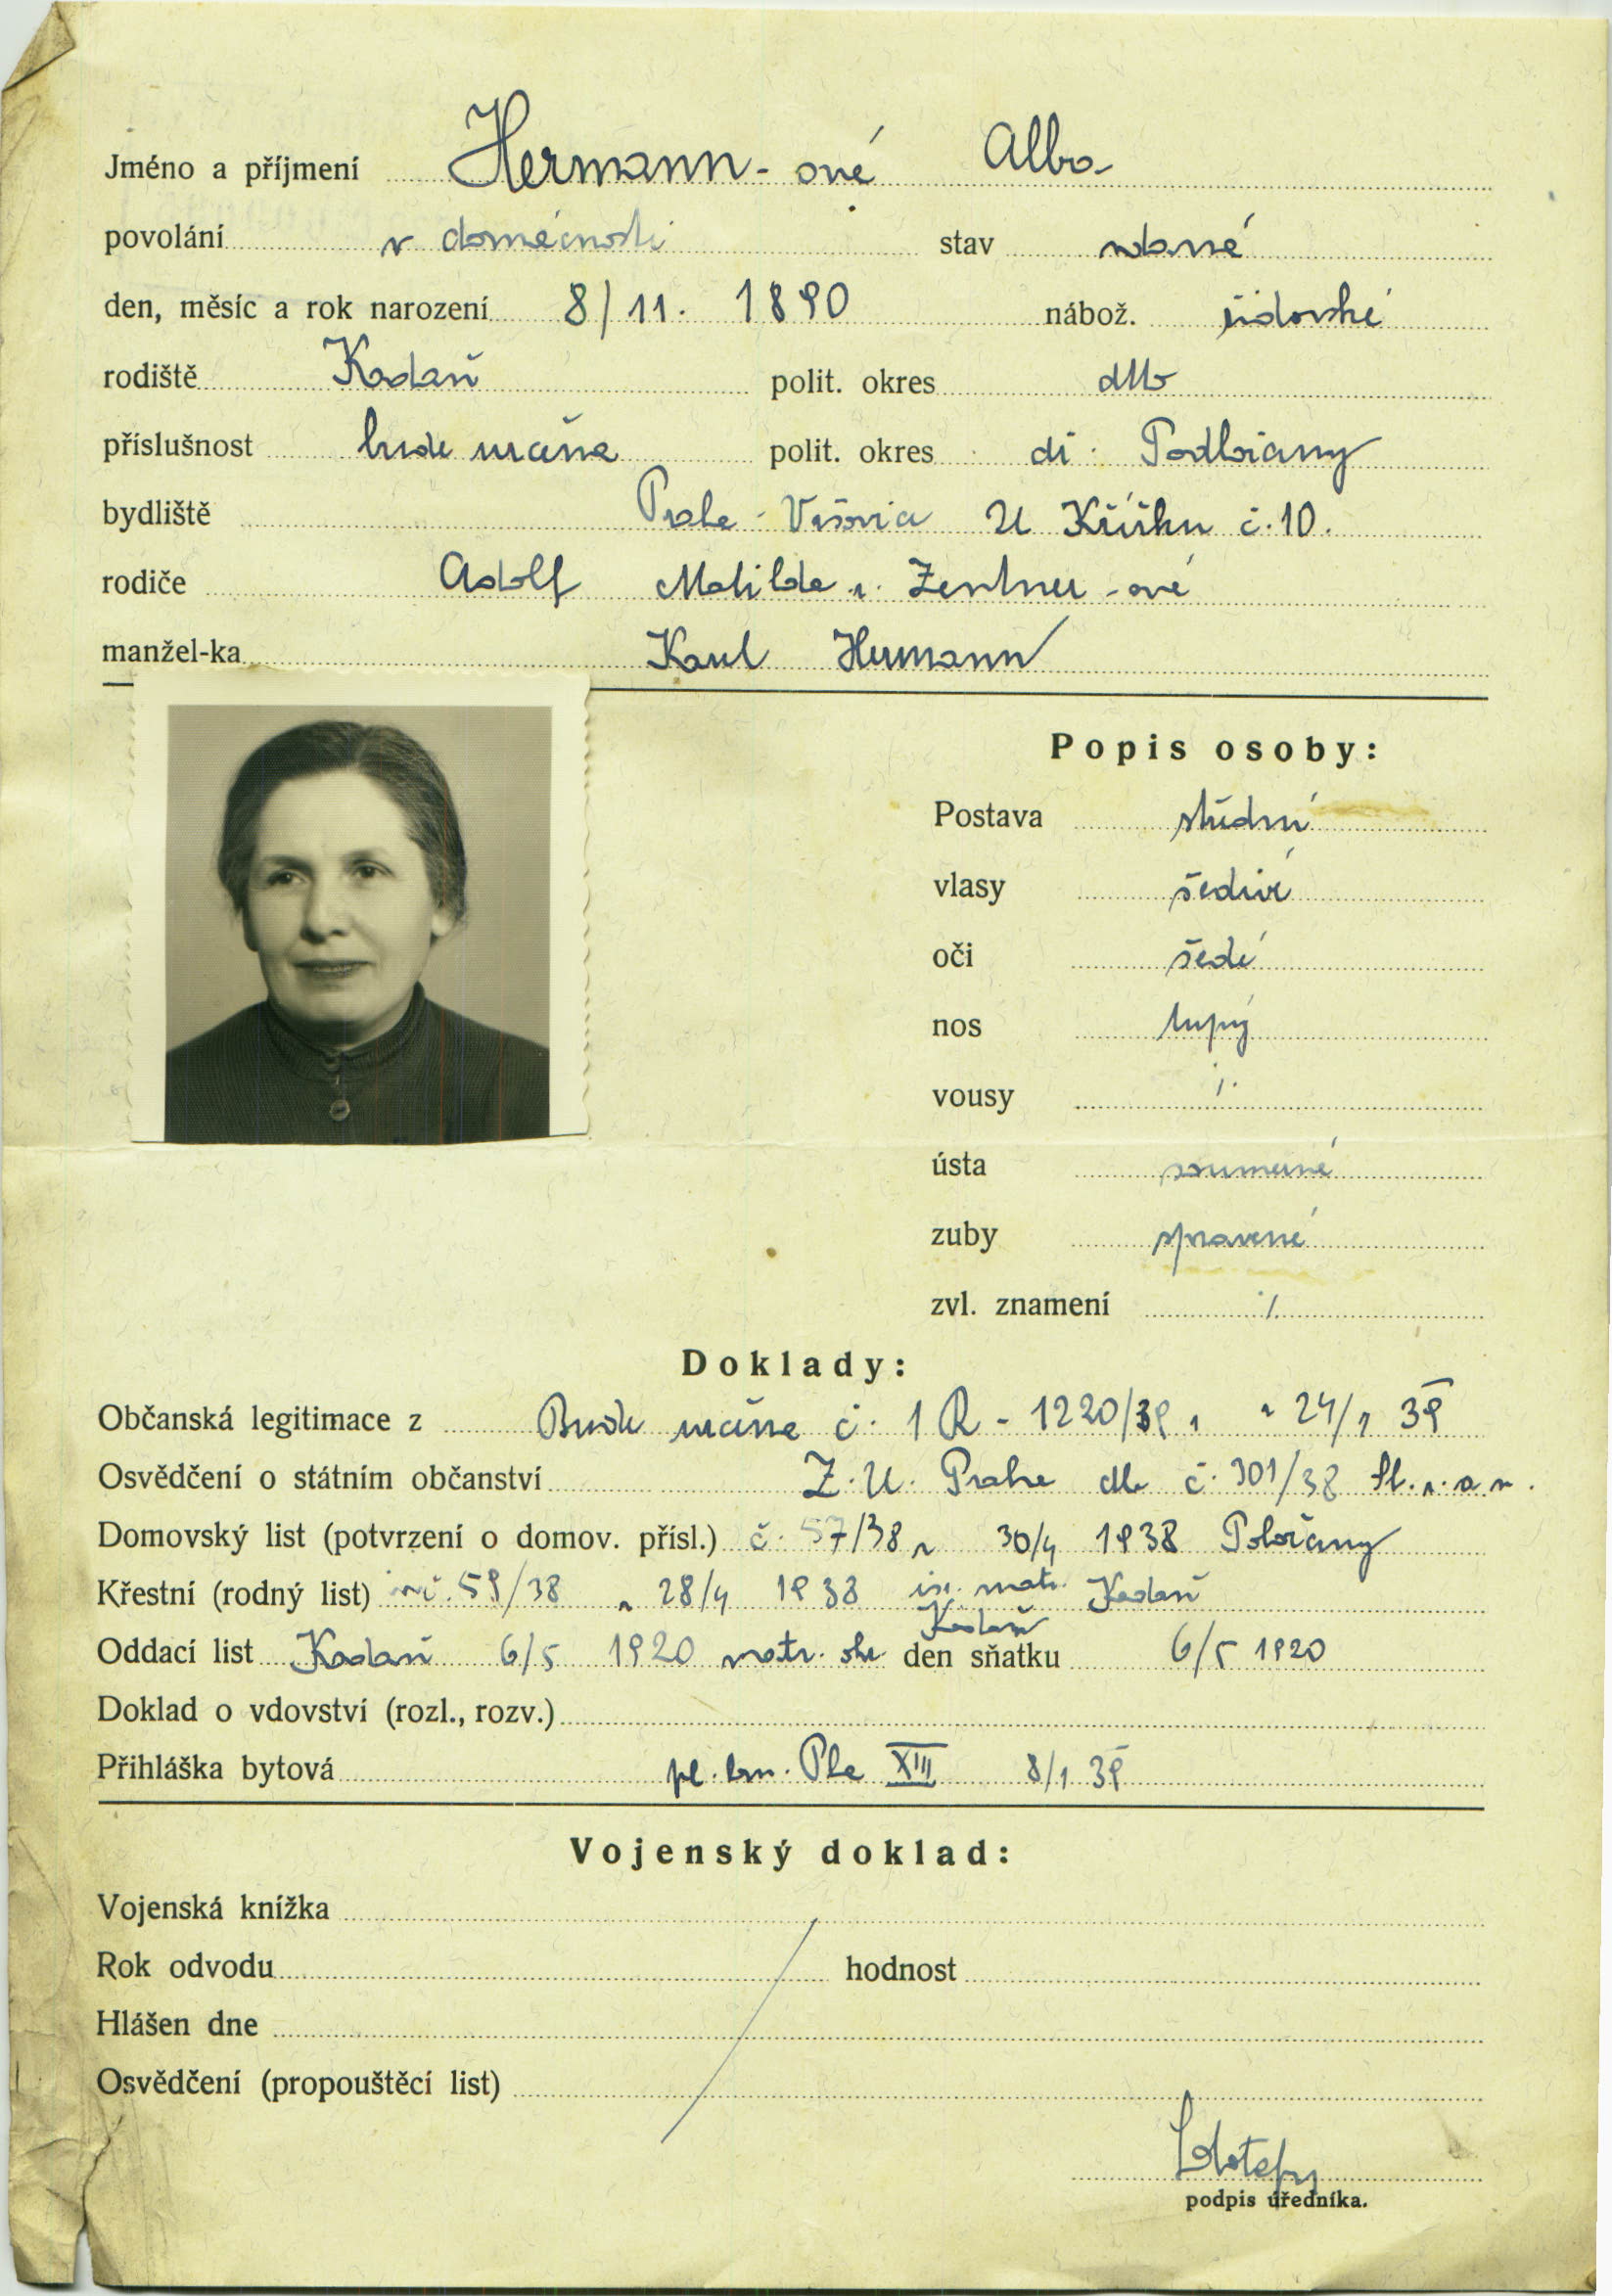 Jméno a příjmení Hermann-ová Alba
povolání v domácnosti stav vdaná
den, měsíc a rok narození 8/11. 1890 nábož. židovské
rodiště Kadaň polit. okres dtto
příslušnost polit. okres Podbořany
bydliště Praha - Vršovice U Křížku č. 10.
rodiče Adolf Matilda r. Zentner-ová
manžel-ka Karel Hermann
Popis osoby:
Postava střední
vlasy šedivé
oči šedé
nos tupý
vousy /.
ústa souměrné
zuby spravené
zvl. znamení /.
Doklady:
Občanská legitimace z č. 1 R - 1220/39 24/1 39
Osvědčení o státním občanství Z. U. Praha č. 301/38
Domovský list (potvrzení o domov. přísl.) č. 57/38 z 30/4 1938
Křestní (rodný list) č. 59/38 z 28/4 1938 isr. matr. Kadaň
Oddací list Kadaň 6/5 1920 matr. Kadaň den sňatku 6/5 1920
Doklad o vdovství (rozl., rozv.)
Přihláška bytová pol. kom. Pha XIII 8/1 39
Vojenský doklad:
Vojenská knížka
Rok odvodu hodnost
Hlášen dne
Osvědčení (propouštěcí list)
podpis úředníka.